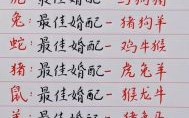 兔:最佳婚配-猪狗羊
蛇:最佳婚配-鸡牛猴
猪:最佳婚配-虎兔羊
鼠:最佳婚配-猴龙牛